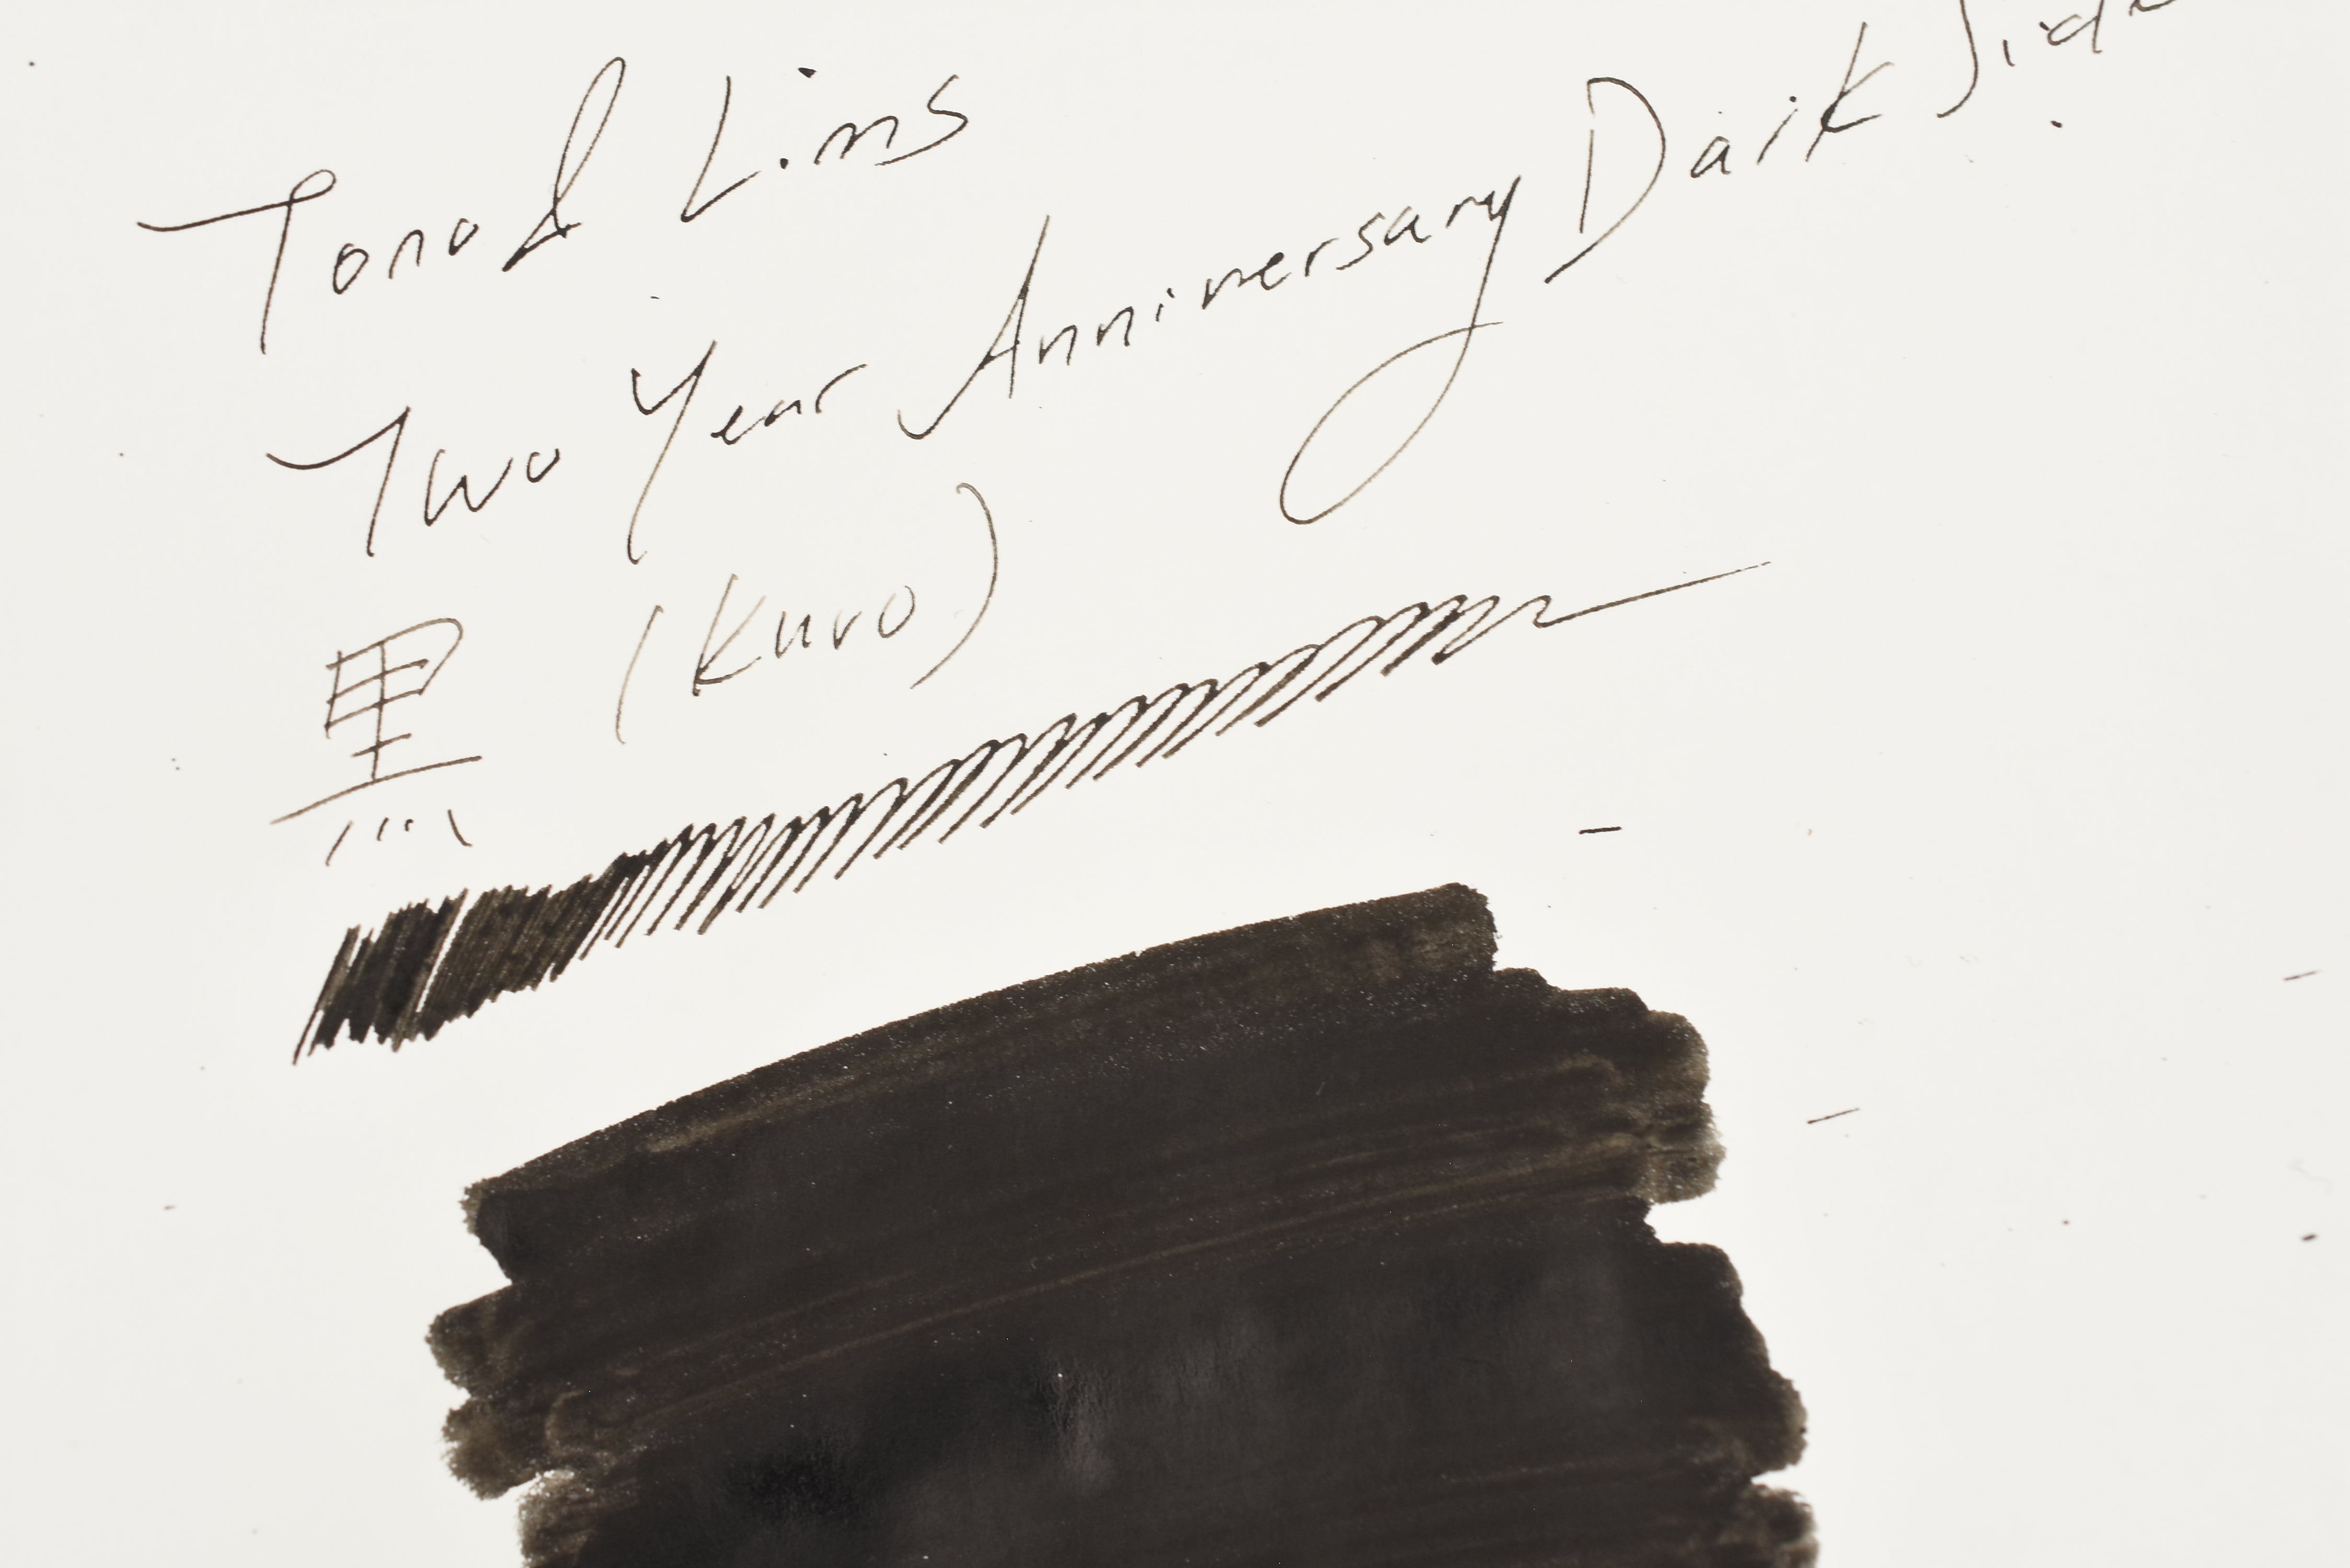 Tono & Lims
Two Year Anniversary Dark Side
黒 (Kuro)